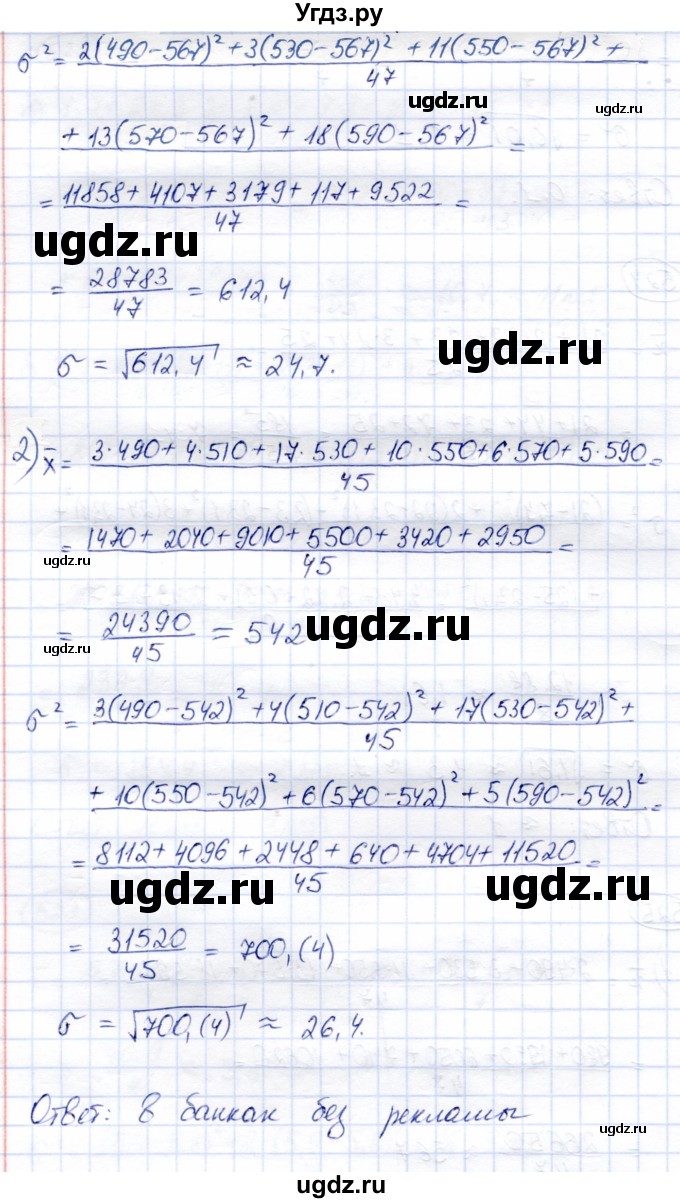 Угдз.ру
σ² = 2(490−567)² + 3(530−567)² + 11(550−567)² + / 47
ugdz.ru
ugdz.ru
+ 13(570−567)² + 18(590−567)² =
= 11858 + 4107 + 3179 + 117 + 9522 / 47 =
ugdz.ru
ugdz.ru
= 28783 / 47 = 612,4
ugdz.ru
σ = √612,4 ≈ 24,7.
2) x̄ = 3·490 + 4·510 + 17·530 + 10·550 + 6·570 + 5·590 / 45 =
= 1470 + 2040 + 9010 + 5500 + 3420 + 2950 / 45 =
= 24390 / 45 = 542
ugdz.ru
ugdz.ru
σ² = 3(490−542)² + 4(510−542)² + 17(530−542)² + / 45
+ 10(550−542)² + 6(570−542)² + 5(590−542)² =
= 8112 + 4096 + 2448 + 640 + 4704 + 11520 / 45 =
ugdz.ru
ugdz.ru
= 31520 / 45 = 700,(4)
σ = √700,(4) ≈ 26,4.
ugdz.ru
ugdz.ru
Ответ: в банках без рекламы
ugdz.ru
ugdz.ru